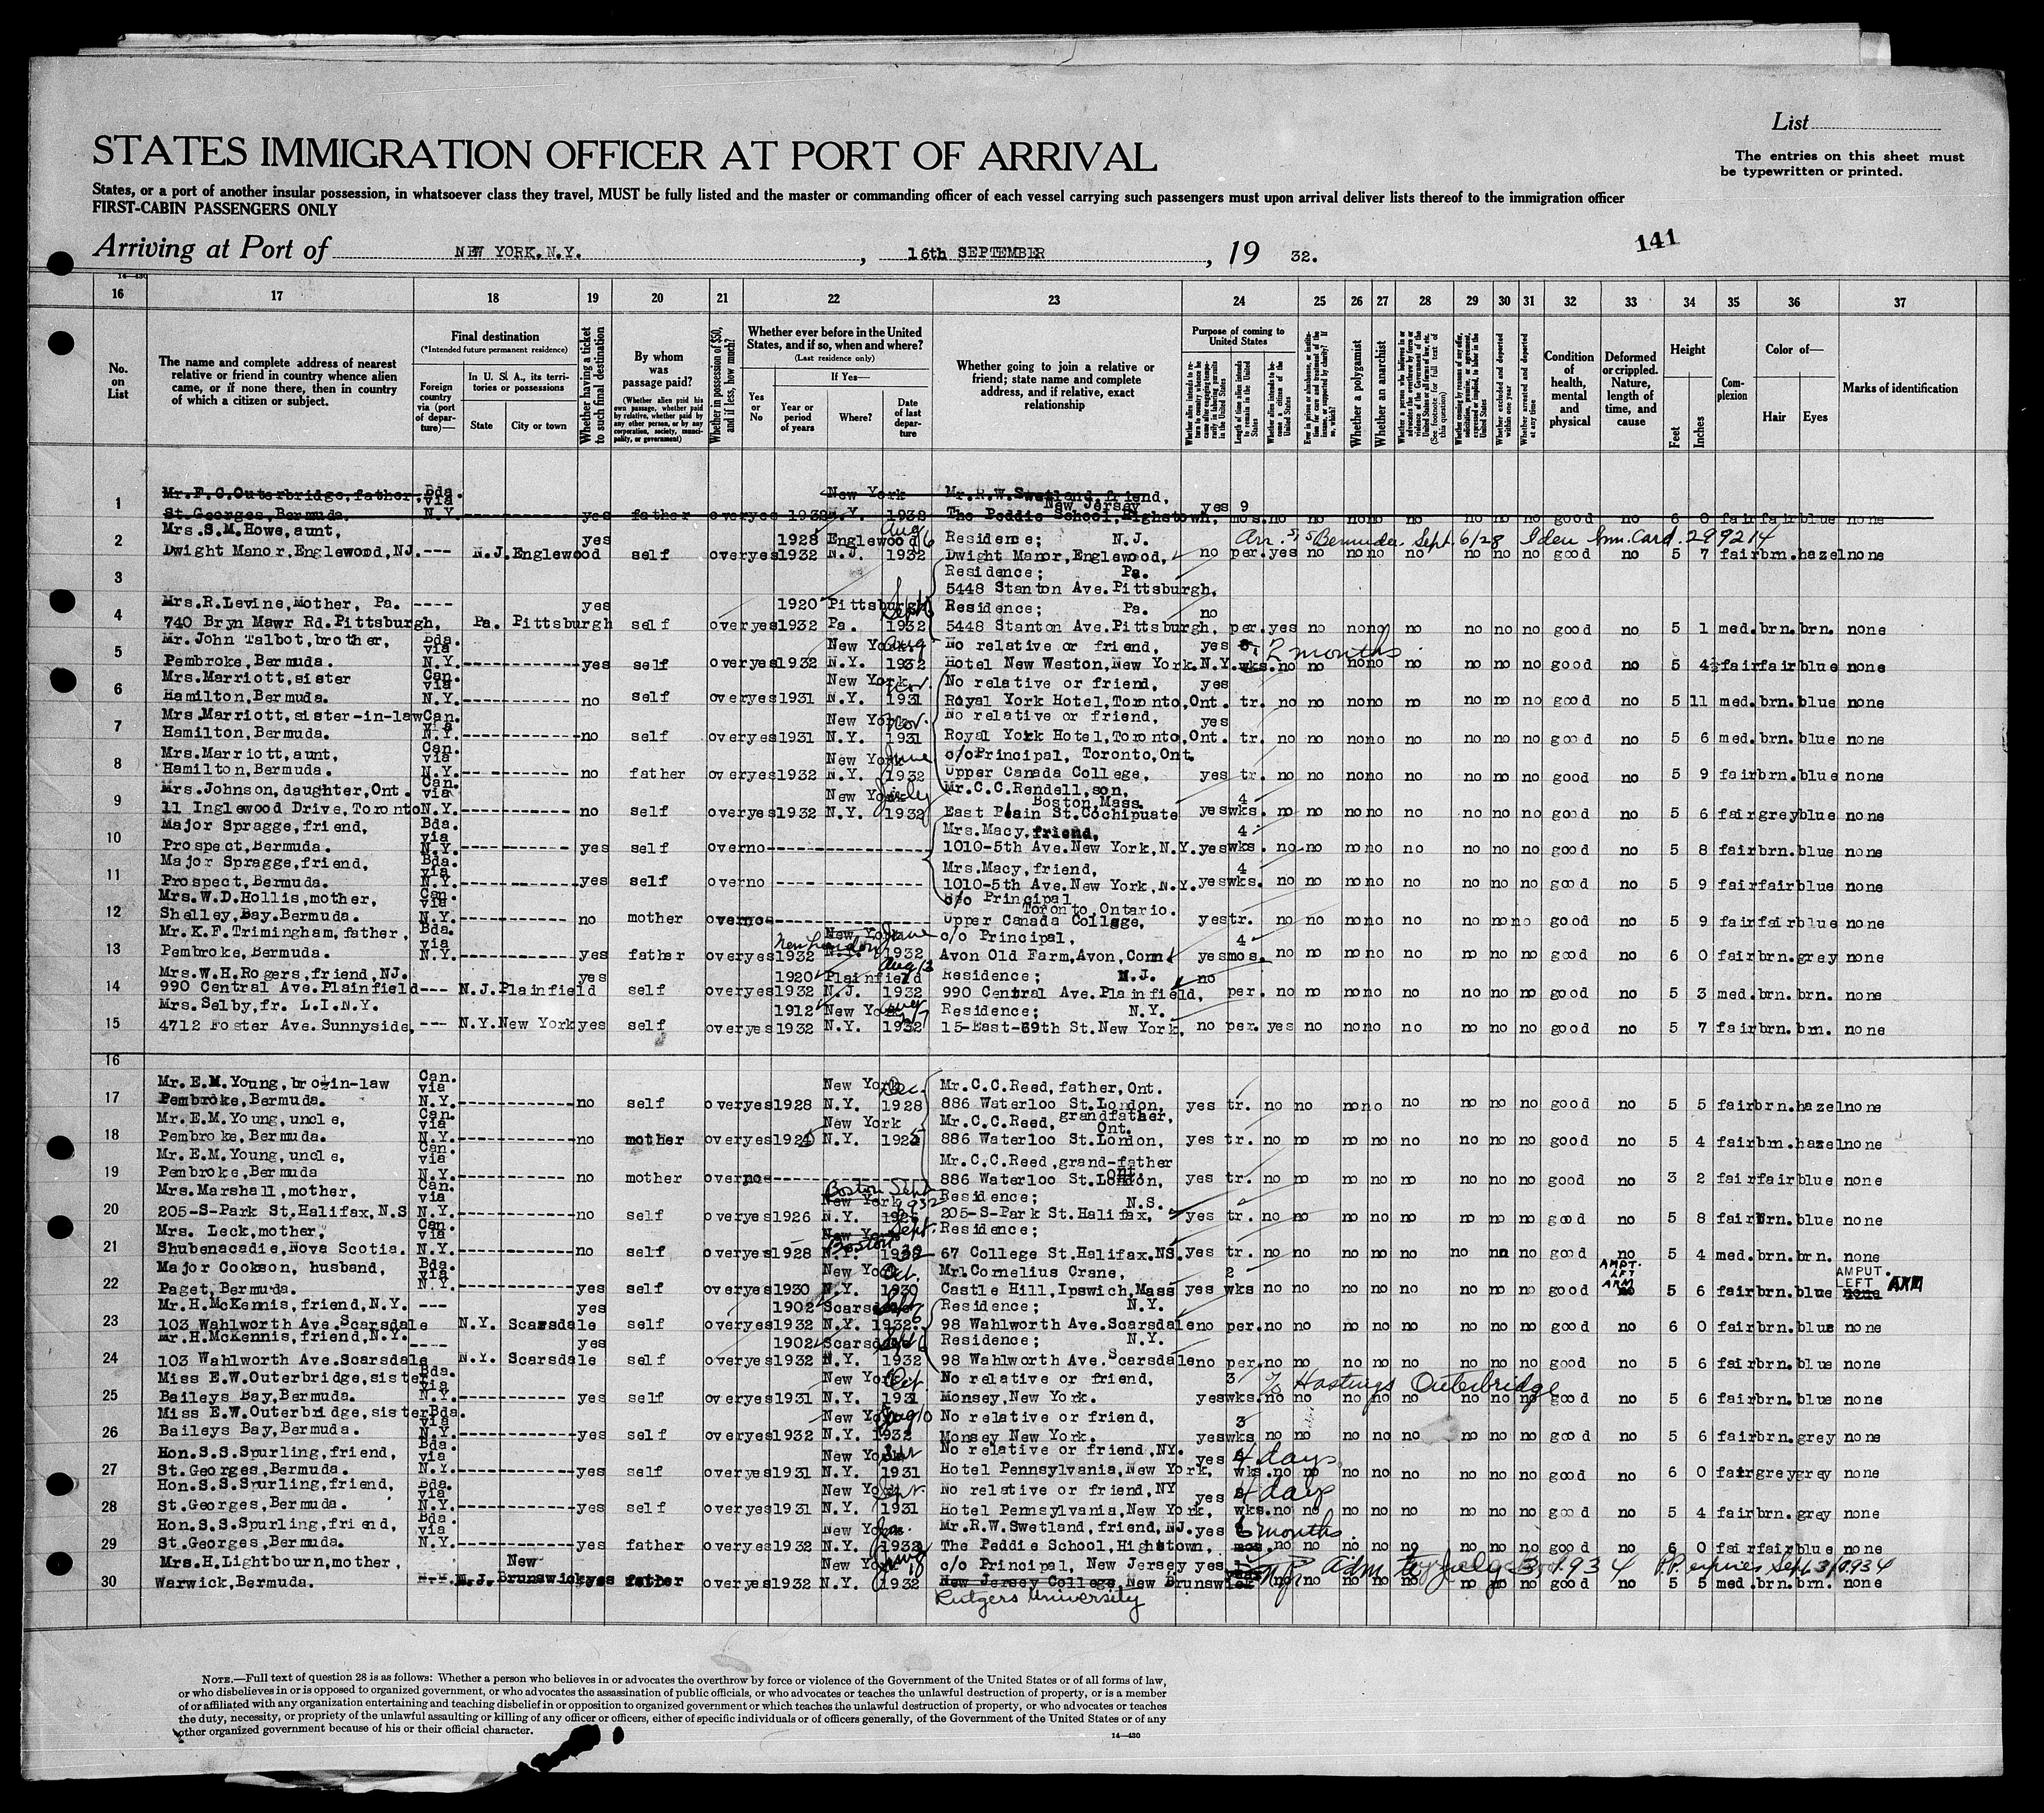 List
STATES IMMIGRATION OFFICER AT PORT OF ARRIVAL
The entries on this sheet must
be typewritten or printed.
States, or a port of another insular possession, in whatsoever class they travel, MUST be fully listed and the master or commanding officer of each vessel carrying such passengers must upon arrival deliver lists thereof to the immigration officer
FIRST-CABIN PASSENGERS ONLY
Arriving at Port of NEW YORK. N.Y. , 16th SEPTEMBER , 19 32.
141
14—430
16 17 18 19 20 21 22 23 24 25 26 27 28 29 30 31 32 33 34 35 36 37
No. on List
The name and complete address of nearest
relative or friend in country whence alien
came, or if none there, then in country
of which a citizen or subject.
Final destination
(*Intended future permanent residence)
Foreign country via (port of departure)—
In U. S. A., its territories or possessions
State
City or town
Whether having a ticket to such final destination
By whom was passage paid?
(Whether alien paid his own passage, whether paid by relative, whether paid by any other person, or by any corporation, society, municipality, or government)
Whether in possession of $50, and if less, how much?
Whether ever before in the United States, and if so, when and where?
(Last residence only)
Yes or No
If Yes—
Year or period of years
Where?
Date of last departure
Whether going to join a relative or friend; state name and complete address, and if relative, exact relationship
Purpose of coming to United States
Length of time alien intends to remain in the United States
Whether alien intends to become a citizen of the United States
Whether a polygamist
Whether an anarchist
Whether arrested and deported at any time
Condition of health, mental and physical
Deformed or crippled. Nature, length of time, and cause
Height
Feet
Inches
Complexion
Color of—
Hair
Eyes
Marks of identification
1 Mr. F. C. Outerbridge, father, Bda. via New York Mr. R.W. Swetland, friend,
New Jersey
St. Georges, Bermuda. N.Y. yes father over yes 1932 N.Y. 1932 The Peddie School, Highstown, yes 9 mos. no no no no no no no no good no 6 0 fair fair blue none
2 Mrs. S.M. Howe, aunt, yes 1928 Englewood Aug 6 Residence; N.J. Arr. S/S Bermuda Sept. 6/28 Iden Imm. Card. 299214
Dwight Manor, Englewood, NJ. --- N.J. Englewood self over yes 1932 N.J. 1932 Dwight Manor, Englewood, no per. yes no no no no no no no good no 5 7 fair brn. hazel none
3 Residence; Pa.
5448 Stanton Ave. Pittsburgh,
4 Mrs. R. Levine, Mother, Pa. ---- yes 1920 Pittsburgh Residence; Pa. no
740 Bryn Mawr Rd. Pittsburgh, Pa. Pittsburgh self over yes 1932 Pa. 1932 5448 Stanton Ave. Pittsburgh, per. yes no no no no no no no good no 5 1 med. brn. brn. none
5 Mr. John Talbot, brother, Bda. via New York Aug No relative or friend, yes 2 months
Pembroke, Bermuda. N.Y. yes self over yes 1932 N.Y. 1932 Hotel New Weston, New York. N.Y. wks. no no no no no no no no good no 5 4½ fair fair blue none
6 Mrs. Marriott, sister Can. via New York Nov. No relative or friend, yes
Hamilton, Bermuda. N.Y. no self over yes 1931 N.Y. 1931 Royal York Hotel, Toronto, Ont. tr. no no no no no no no no good no 5 11 med. brn. blue none
7 Mrs. Marriott, sister-in-law Can. via New York Nov. No relative or friend, yes
Hamilton, Bermuda. N.Y. no self over yes 1931 N.Y. 1931 Royal York Hotel, Toronto, Ont. tr. no no no no no no no no good no 5 6 med. brn. blue none
8 Mrs. Marriott, aunt, Can. via New York June c/o Principal, Toronto, Ont.
Hamilton, Bermuda. N.Y. no father over yes 1932 N.Y. 1932 Upper Canada College, yes tr. no no no no no no no no good no 5 9 fair brn. blue none
9 Mrs. Johnson, daughter, Ont. Can. via New York July Mr. C.C. Rendell, son,
Boston, Mass. 4
11 Inglewood Drive, Toronto N.Y. no self over yes 1932 N.Y. 1932 East Plain St. Cochipuate yes wks. no no no no no no no no good no 5 6 fair grey blue none
10 Major Spragge, friend, Bda. via Mrs. Macy, friend, 4
Prospect, Bermuda. N.Y. yes self over no 1010-5th Ave. New York, N.Y. yes wks. no no no no no no no no good no 5 8 fair brn. blue none
11 Major Spragge, friend, Bda. via Mrs. Macy, friend, 4
Prospect, Bermuda. N.Y. yes self over no 1010-5th Ave. New York, N.Y. yes wks. no no no no no no no no good no 5 9 fair fair blue none
12 Mrs. W.D. Hollis, mother, Can. via c/o Principal
Toronto Ontario.
Shelley, Bay. Bermuda. N.Y. no mother over no Upper Canada College, yes tr. no no no no no no no no good no 5 9 fair fair blue none
13 Mr. K.F. Trimingham, father, Bda. via New York New London June c/o Principal, 4
Pembroke, Bermuda. N.Y. yes father over yes 1932 1932 Avon Old Farm, Avon, Conn yes mos. no no no no no no no no good no 6 0 fair brn. grey none
14 Mrs. W.H. Rogers, friend, NJ. yes 1920 Plainfield Aug 13 Residence; N.J. no
990 Central Ave. Plainfield --- N.J. Plainfield self over yes 1932 N.J. 1932 990 Central Ave. Plainfield, per. no no no no no no no no good no 5 3 med. brn. brn. none
15 Mrs. Selby, fr. L.I.N.Y. 1912 New York Residence; N.Y.
4712 Foster Ave. Sunnyside, --- N.Y. New York yes self over yes 1932 N.Y. 1932 15-East-69th St. New York, no per. yes no no no no no no no good no 5 7 fair brn. brn. none
16
17 Mr. E.M. Young, bro-in-law Can. via New York Dec. Mr. C.C. Reed, father, Ont.
Pembroke, Bermuda. N.Y. no self over yes 1928 N.Y. 1928 886 Waterloo St. London, yes tr. no no no no no no no no good no 5 5 fair brn. hazel none
18 Mr. E.M. Young, uncle, Can. via New York Mr. C.C. Reed, grandfather, Ont.
Pembroke, Bermuda. N.Y. no mother over yes 1925 N.Y. 1925 886 Waterloo St. London, yes tr. no no no no no no no no good no 5 4 fair brn. hazel none
19 Mr. E.M. Young, uncle, Can. via Mr. C.C. Reed, grand-father Ont.
Pembroke, Bermuda N.Y. no mother over no 886 Waterloo St. London, yes tr. no no no no no no no no good no 3 2 fair fair blue none
20 Mrs. Marshall, mother, Can. via Boston Sept 1932 New York Residence; N.S.
205-S-Park St, Halifax, N.S N.Y. no self over yes 1926 N.Y. 1926 205-S-Park St. Halifax, yes tr. no no no no no no no no good no 5 8 fair brn. blue none
21 Mrs. Leck, mother, Can. via New York Boston Sept. Residence;
Shubenacadie, Nova Scotia. N.Y. no self over yes 1928 N.Y. 67 College St. Halifax. NS. yes tr. no no no no no no no no good no 5 4 med. brn. brn. none
22 Major Cookson, husband, Bda. via New York Oct. Mr. Cornelius Crane, 2 AMPT. LFT ARM AMPUT. LEFT ARM
Paget, Bermuda. N.Y. yes self over yes 1930 N.Y. 1930 Castle Hill, Ipswich, Mass yes wks no no no no no no no no good no 5 6 fair brn. blue none
23 Mr. H. McKennis, friend, N.Y. --- yes 1902 Scarsdale Residence; N.Y.
103 Wahlworth Ave. Scarsdale N.Y. Scarsdale self over yes 1932 N.Y. 1932 98 Wahlworth Ave. Scarsdale no per. no no no no no no no no good no 6 0 fair brn. blue none
24 Mr. H. McKennis, friend, N.Y. ---- yes 1902 Scarsdale Residence; N.Y.
103 Wahlworth Ave. Scarsdale N.Y. Scarsdale self over yes 1932 N.Y. 1932 98 Wahlworth Ave. Scarsdale no per. no no no no no no no no good no 5 6 fair brn. blue none
25 Miss E.W. Outerbridge, sister Bda. via New York Oct. No relative or friend, 3 c/o Hastings Outerbridge
Baileys Bay, Bermuda. N.Y. yes self over yes 1931 N.Y. 1931 Monsey, New York. yes wks. no no no no no no no no good no 5 6 fair brn. blue none
26 Miss E.W. Outerbridge, sister Bda. via New York Aug 10 No relative or friend, 3
Baileys Bay, Bermuda. N.Y. yes self over yes 1932 N.Y. 1932 Monsey New York. yes wks no no no no no no no no good no 5 6 fair brn. grey none
27 Hon. S.S. Spurling, friend, Bda. via New York No relative or friend, NY. yes 4 days
St. Georges, Bermuda. N.Y. yes self over yes 1931 N.Y. 1931 Hotel Pennsylvania, New York, wks. no no no no no no no no good no 6 0 fair grey grey none
28 Hon. S.S. Spurling, friend, Bda. via New York No relative or friend, NY yes 4 days
St. Georges, Bermuda. N.Y. yes self over yes 1931 N.Y. 1931 Hotel Pennsylvania, New York, wks. no no no no no no no no good no 5 4 fair brn. grey none
29 Hon. S.S. Spurling, friend, Bda. via New York Mr. R.W. Swetland, friend, NJ. yes 6 months
St. Georges, Bermuda. N.Y. yes father over yes 1932 N.Y. 1932 The Peddie School, Highstown, mos. no no no no no no no no good no 6 0 fair fair blue none
30 Mrs. H. Lightbourn, mother, New New York Aug c/o Principal, New Jersey yes adm to July 3, 1934 P.P. expires Sept. 3/1934
Warwick, Bermuda. N.J. Brunswick yes father over yes 1932 N.Y. 1932 New Jersey College, New Brunswick no no no no no no no no good no 5 5 med. brn. brn. none
Rutgers University
NOTE.—Full text of question 28 is as follows: Whether a person who believes in or advocates the overthrow by force or violence of the Government of the United States or of all forms of law,
or who disbelieves in or is opposed to organized government, or who advocates the assassination of public officials, or who advocates or teaches the unlawful destruction of property, or is a member
of or affiliated with any organization entertaining and teaching disbelief in or opposition to organized government or which teaches the unlawful destruction of property, or who advocates or teaches
the duty, necessity, or propriety of the unlawful assaulting or killing of any officer or officers, either of specific individuals or of officers generally, of the Government of the United States or of any
other organized government because of his or their official character.
14—430